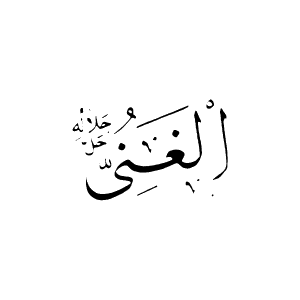 الْغَنِيُّ
جل جلاله